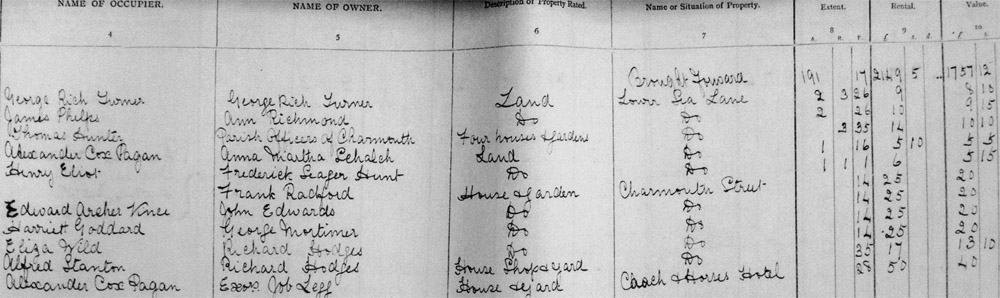 NAME OF OCCUPIER. NAME OF OWNER. Description of Property Rated. Name or Situation of Property. Extent. Rental. Value.
4 5 6 7 8 9 10
a. r. p. £ s. d. £ s.
Brought Forward 191 17 2149 5 1757 12
George Rich Turner George Rich Turner Land Lower Sea Lane 2 3 26 9 8 10
James Phelps Ann Richmond Do Do 2 26 10 9 15
Thomas Hunter Parish Officers of Charmouth Four houses & gardens Do 2 35 14 10 10
Alexander Cox Pagan Anna Martha Land Do 1 16 5 10 5 5
Henry Eliot Frederick Seager Hunt Do Do 1 1 1 6 5 15
Frank Radford House & Garden Charmouth Street 14 25 20
Edward Archer John Edwards Do Do 14 25 20
Harriet Goddard George Mortimer Do Do 14 25 20
Eliza Wild Richard Hodges Do Do 35 17 13 10
Alfred Stanton Richard Hodges House Shop & yard Do 28 50 40
Alexander Cox Pagan Exors Job Legg House & Yard Coach & Horses Hotel